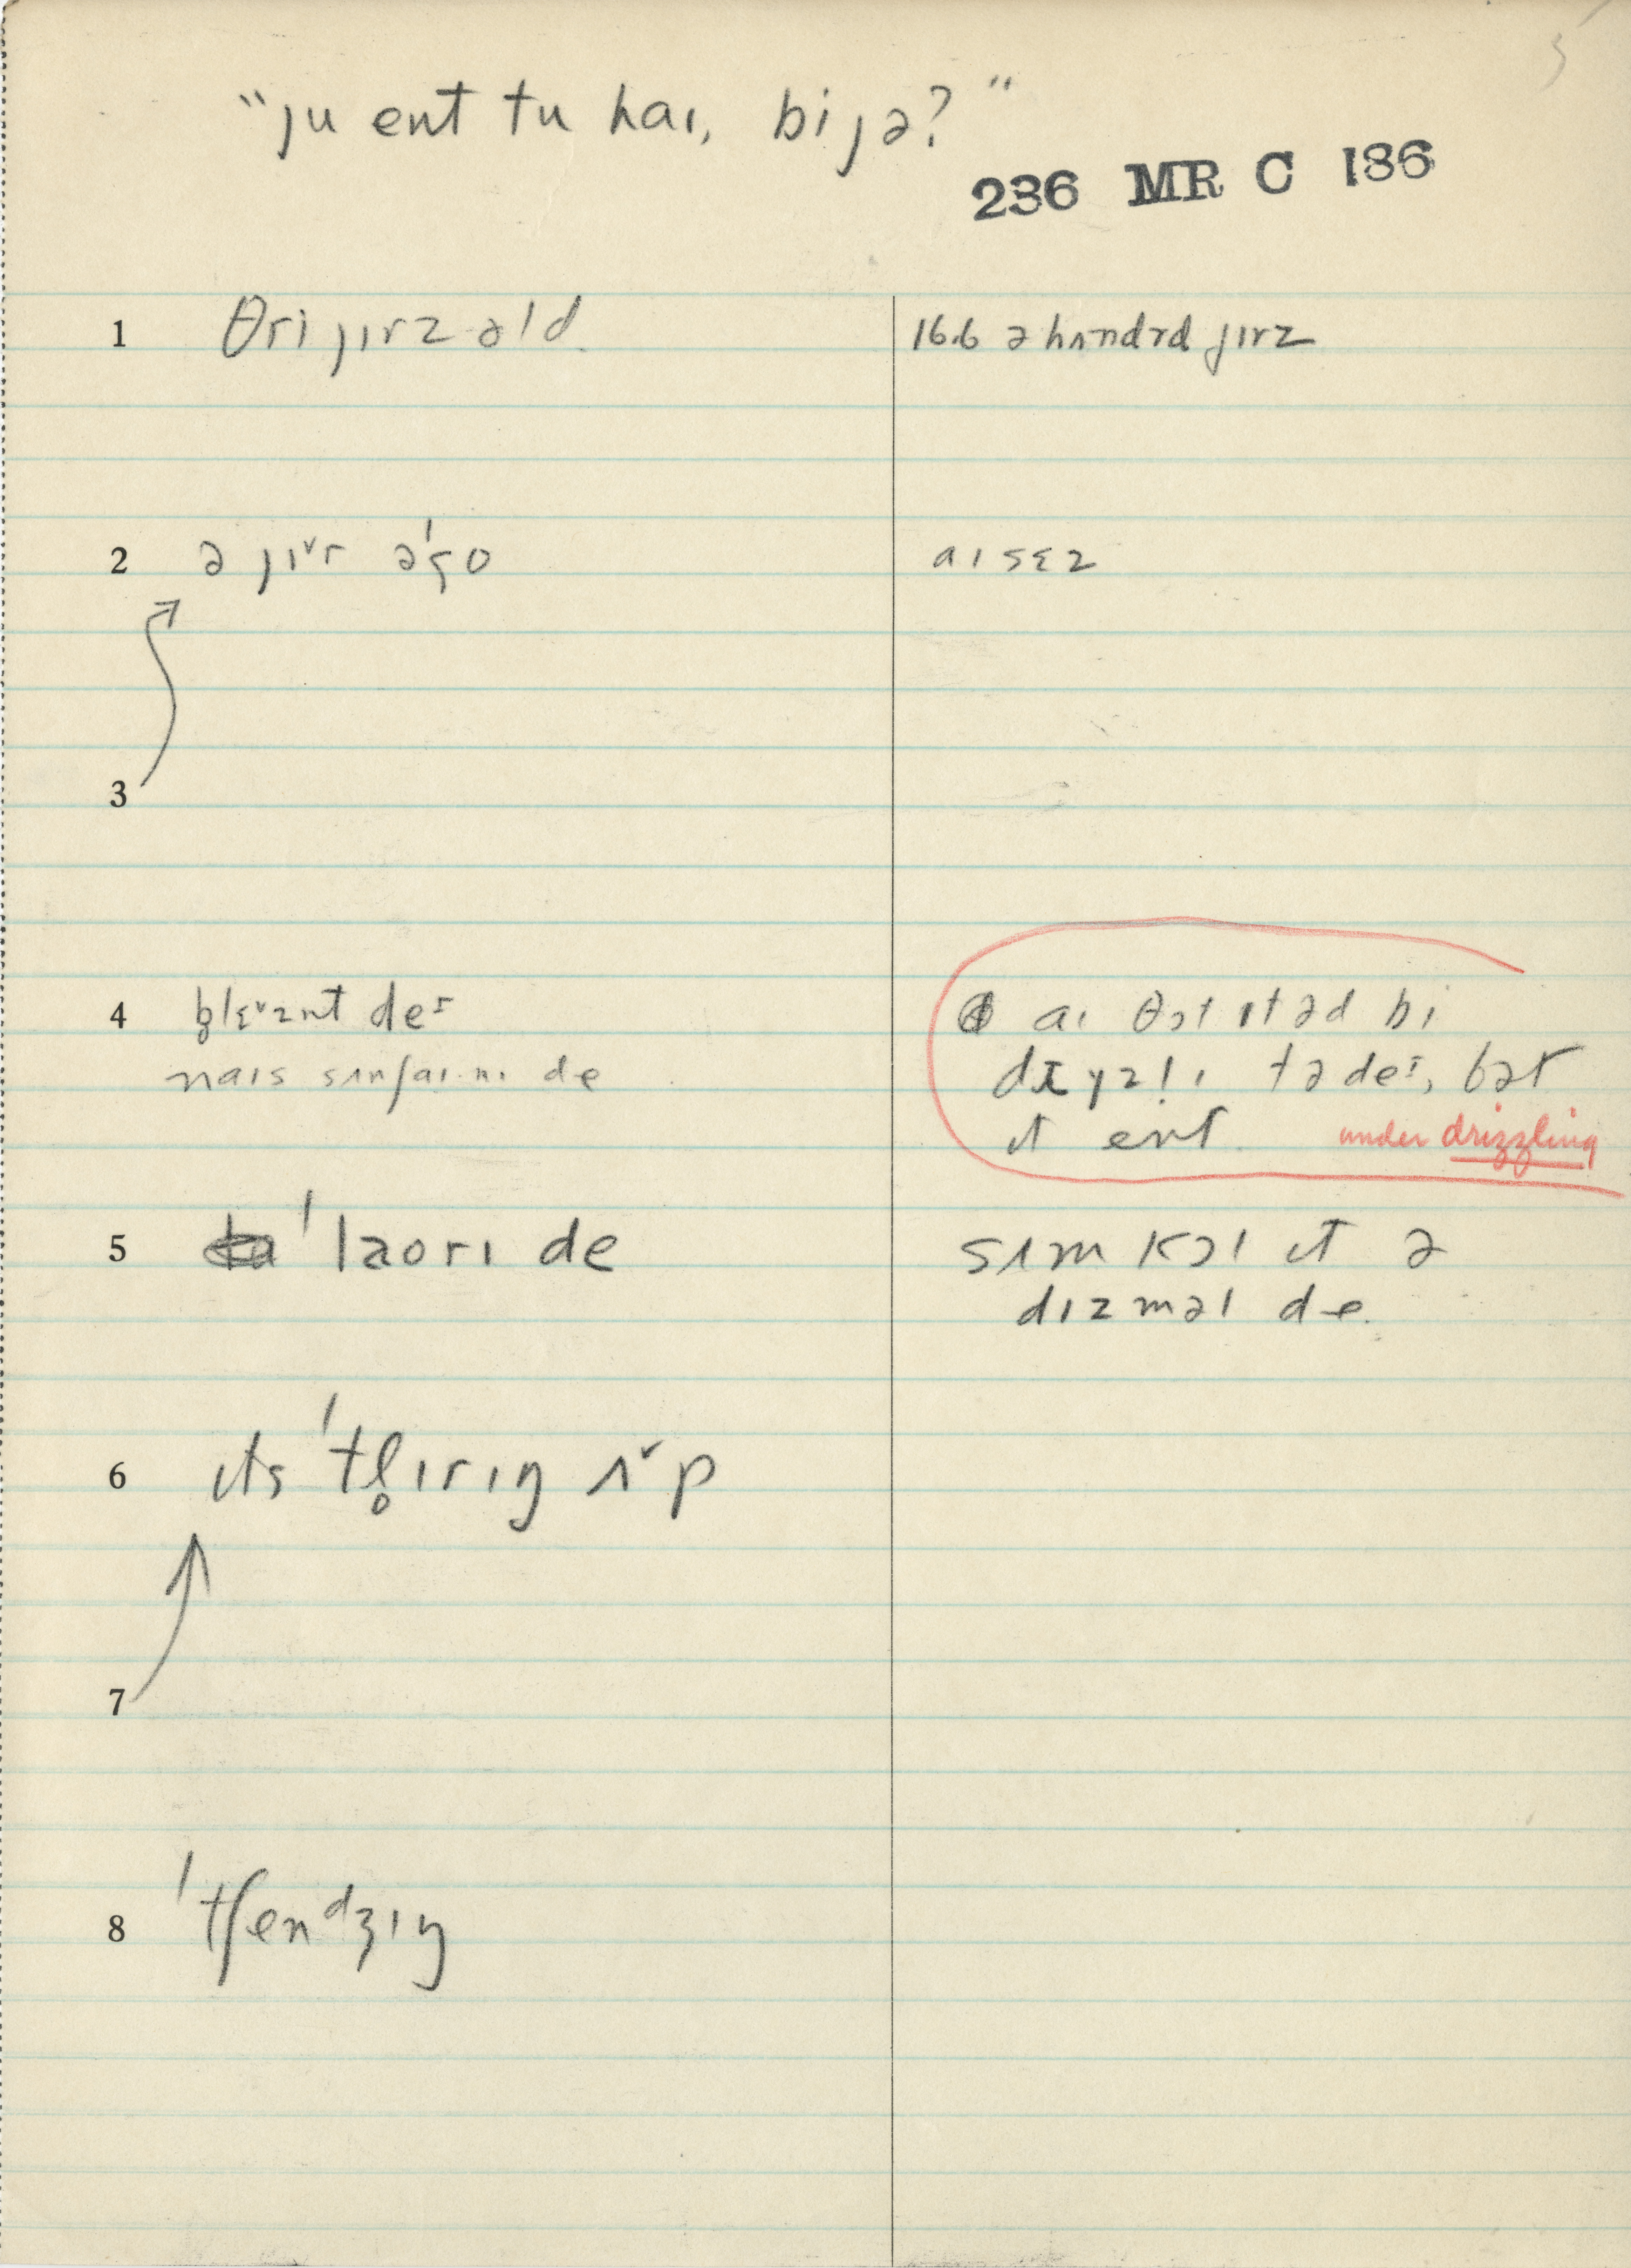 "ju ent tu haɪ, bi jə?"
236 MR C 186
1 θri jɪrz əld
16.6 ə hʌndrd jɪrz
2 ə jɪ˅r əˈgo
aɪ sɛz
3
4 plɛ˅znt deɪ
naɪs sʌnʃaɪnɪ de
aɪ θɔt ɪt əd bi
drɪzlɪ tədeɪ, bət
ɪt ent
under drizzling
5 ˈlaorɪ de
sʌm kɔl ɪt ə
dɪzməl de
6 ɪts ˈtl̥ɪrɪŋ ʌ˅p
7
8 ˈtʃendʒɪŋ